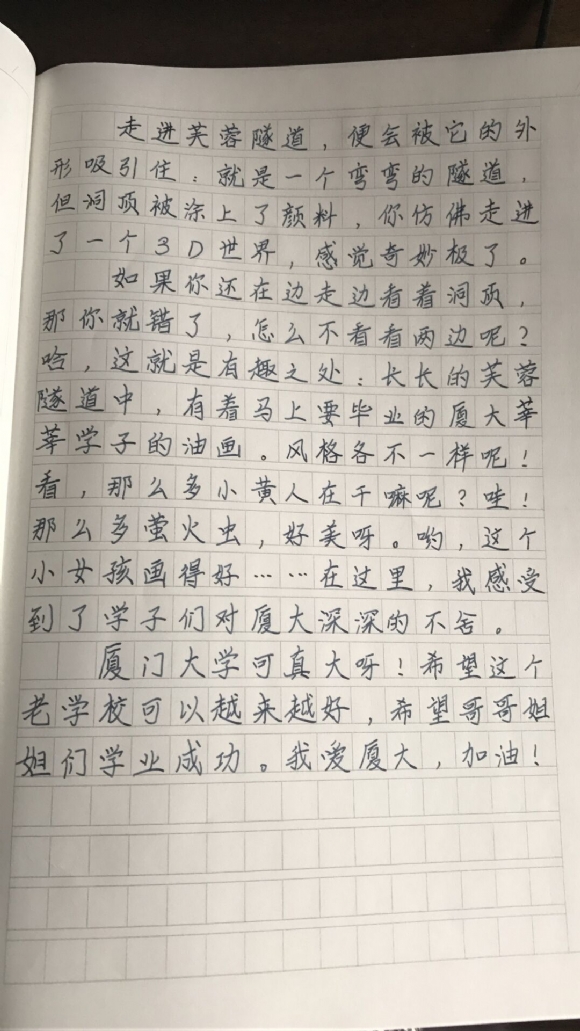 走进芙蓉隧道，便会被它的外
形吸引住：就是一个弯弯的隧道，
但洞顶被涂上了颜料，你仿佛走进
了一个3D世界，感觉奇妙极了。
如果你还在边走边看着洞顶，
那你就错了，怎么不看看两边呢？
哈，这就是有趣之处：长长的芙蓉
隧道中，有着马上要毕业的厦大莘
莘学子的油画。风格各不一样呢！
看，那么多小黄人在干嘛呢？哇！
那么多萤火虫，好美呀。哟，这个
小女孩画得好……在这里，我感受
到了学子们对厦大深深的不舍。
厦门大学可真大呀！希望这个
老学校可以越来越好，希望哥哥姐
姐们学业成功。我爱厦大，加油！